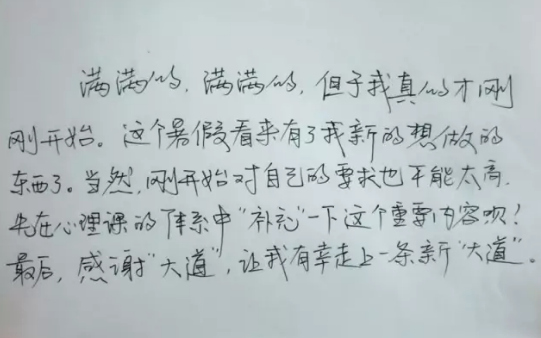 满满的，满满的，但于我真的才刚
刚开始。这个暑假看来有了我新的想做的
东西了。当然，刚开始对自己的要求也不能太高，
先在心理课的体系中“补充”一下这个重要内容呗！
最后，感谢“大道”，让我有幸走上一条新“大道”。